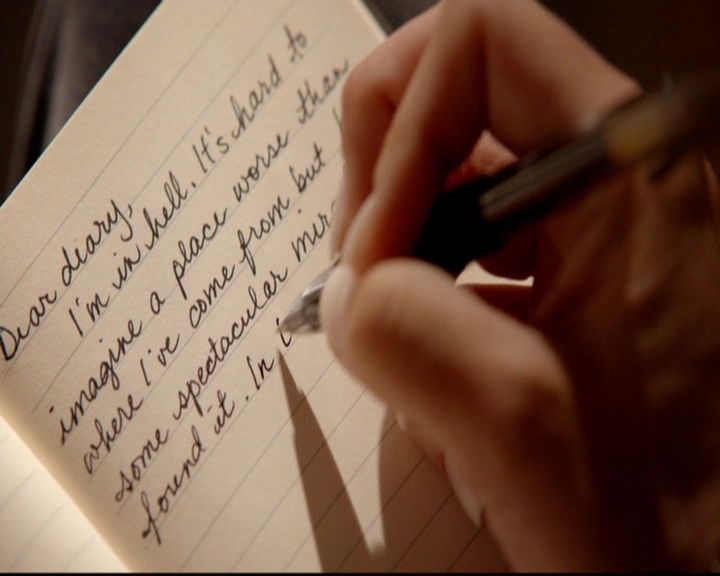 Dear diary,
I'm in hell. It's hard to
imagine a place worse than
where I've come from but
some spectacular
found it. In